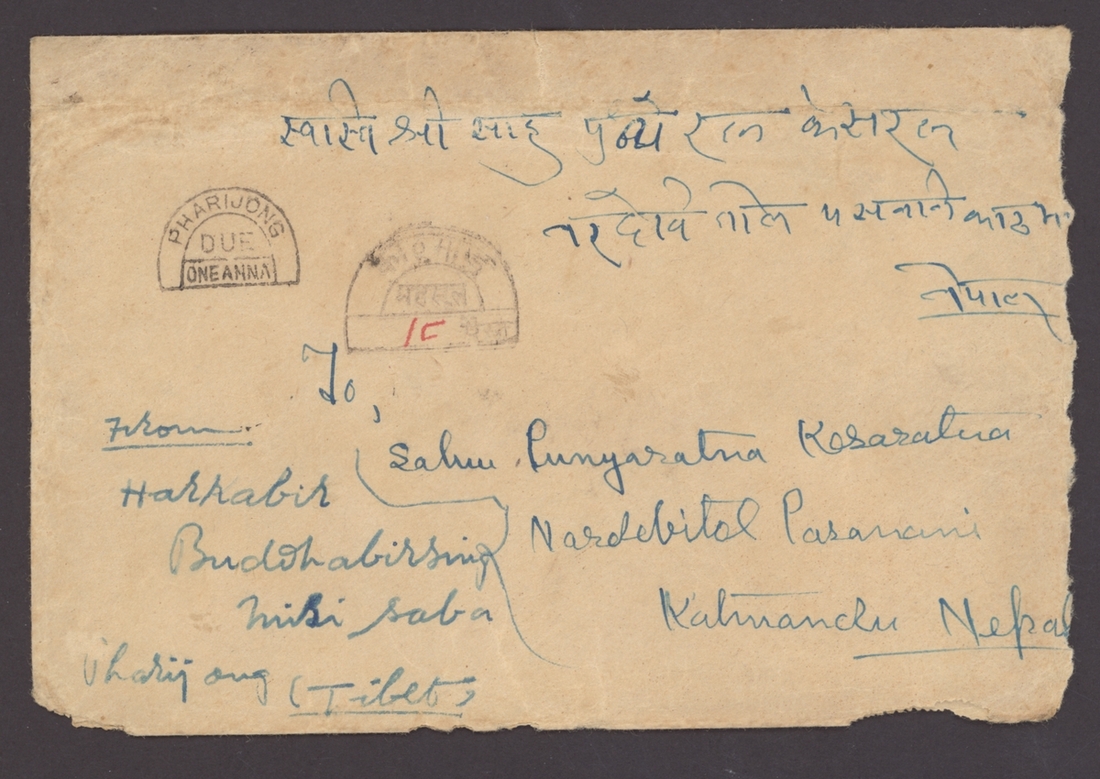 स्वास्ति श्री साहु पुन्ये रत्न केसरत्न
नरदेवि तोल पसनानि काठम
नेपाल
PHARIJONG
DUE
ONE ANNA
महसूल
१८
To,
From
Sahu Punyaratna Kesaratna
Harkabir
Nardebitol Pasanani
Buddhabirsing
Katmandu Nepal
saba
Pharijong (Tibet)